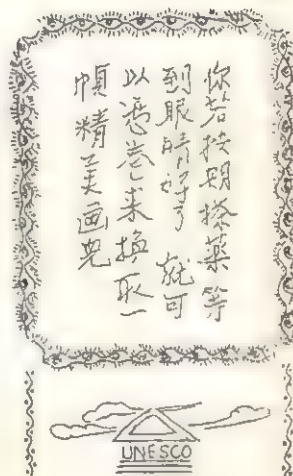 你若按期搽薬等
到眼睛好了 就可
以憑卷来換取一
幀精美画児
UNESCO